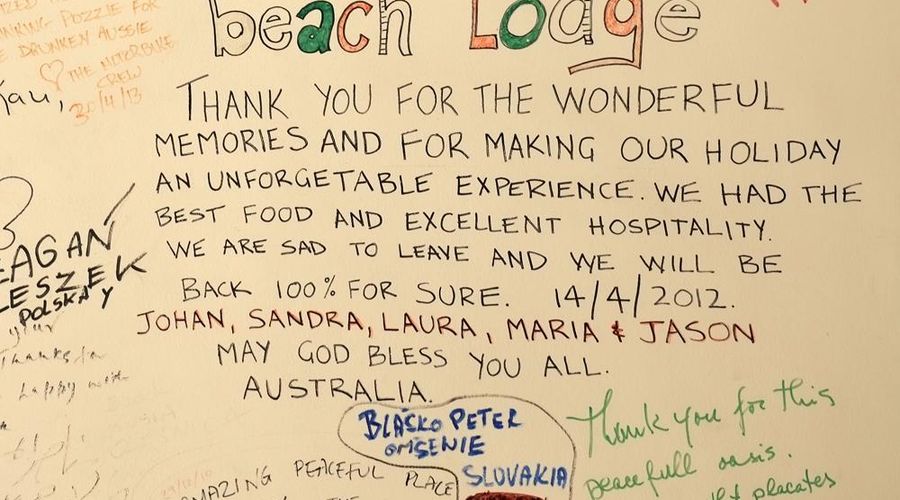 beach Lodge
THANK YOU FOR THE WONDERFUL
MEMORIES AND FOR MAKING OUR HOLIDAY
AN UNFORGETABLE EXPERIENCE. WE HAD THE
BEST FOOD AND EXCELLENT HOSPITALITY.
WE ARE SAD TO LEAVE AND WE WILL BE
BACK 100% FOR SURE. 14/4/2012.
JOHAN, SANDRA, LAURA, MARIA & JASON
MAY GOD BLESS YOU ALL.
AUSTRALIA.
PUZZLE FOR
DRUNKEN AUSSIE
THE MOTORBIKE
CREW
30/11/13
LESZEK
POLSKA
Thanks for
happy
BLAŠKO PETER
OMŠENIE
SLOVAKIA
AMAZING PEACEFUL PLACE
THE
Thank you for this
peacefull oasis.
placates